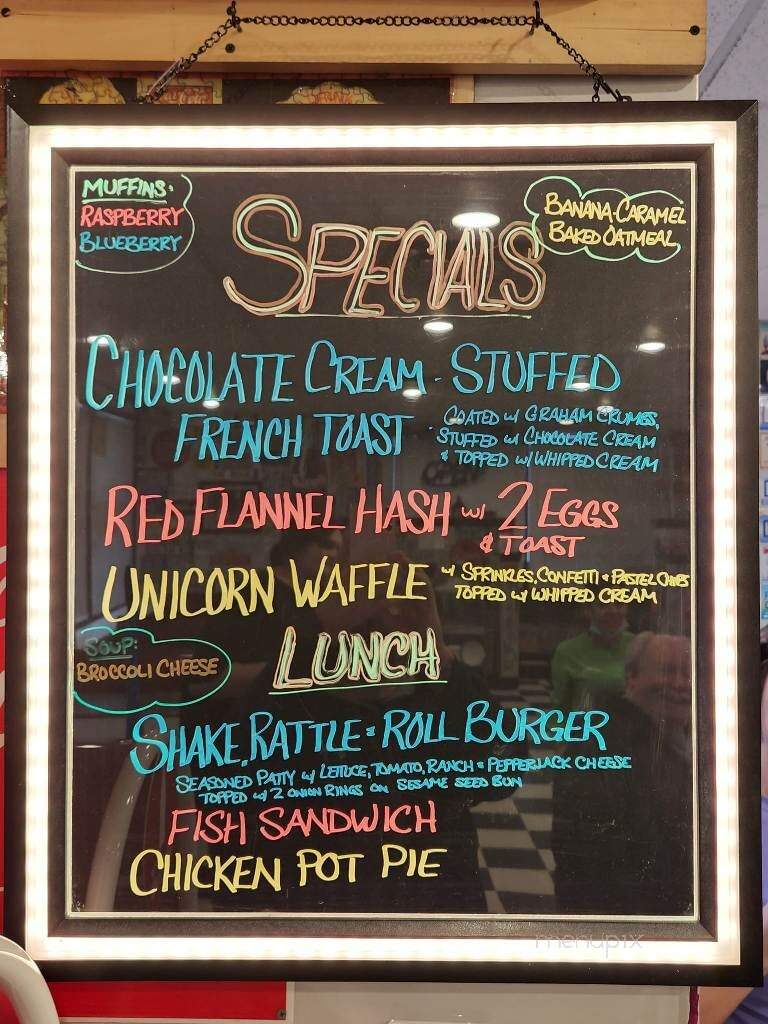 MUFFINS:
RASPBERRY
BLUEBERRY
SPECIALS
BANANA-CARAMEL
BAKED OATMEAL
CHOCOLATE CREAM - STUFFED
FRENCH TOAST
- COATED w/ GRAHAM CRUMBS,
STUFFED w/ CHOCOLATE CREAM
& TOPPED w/ WHIPPED CREAM
RED FLANNEL HASH w/ 2 EGGS
& TOAST
UNICORN WAFFLE
w/ SPRINKLES, CONFETTI & PASTEL CHIPS
TOPPED w/ WHIPPED CREAM
SOUP:
BROCCOLI CHEESE
LUNCH
SHAKE, RATTLE & ROLL BURGER
SEASONED PATTY w/ LETTUCE, TOMATO, RANCH & PEPPERJACK CHEESE
TOPPED w/ 2 ONION RINGS ON SESAME SEED BUN
FISH SANDWICH
CHICKEN POT PIE
menupix